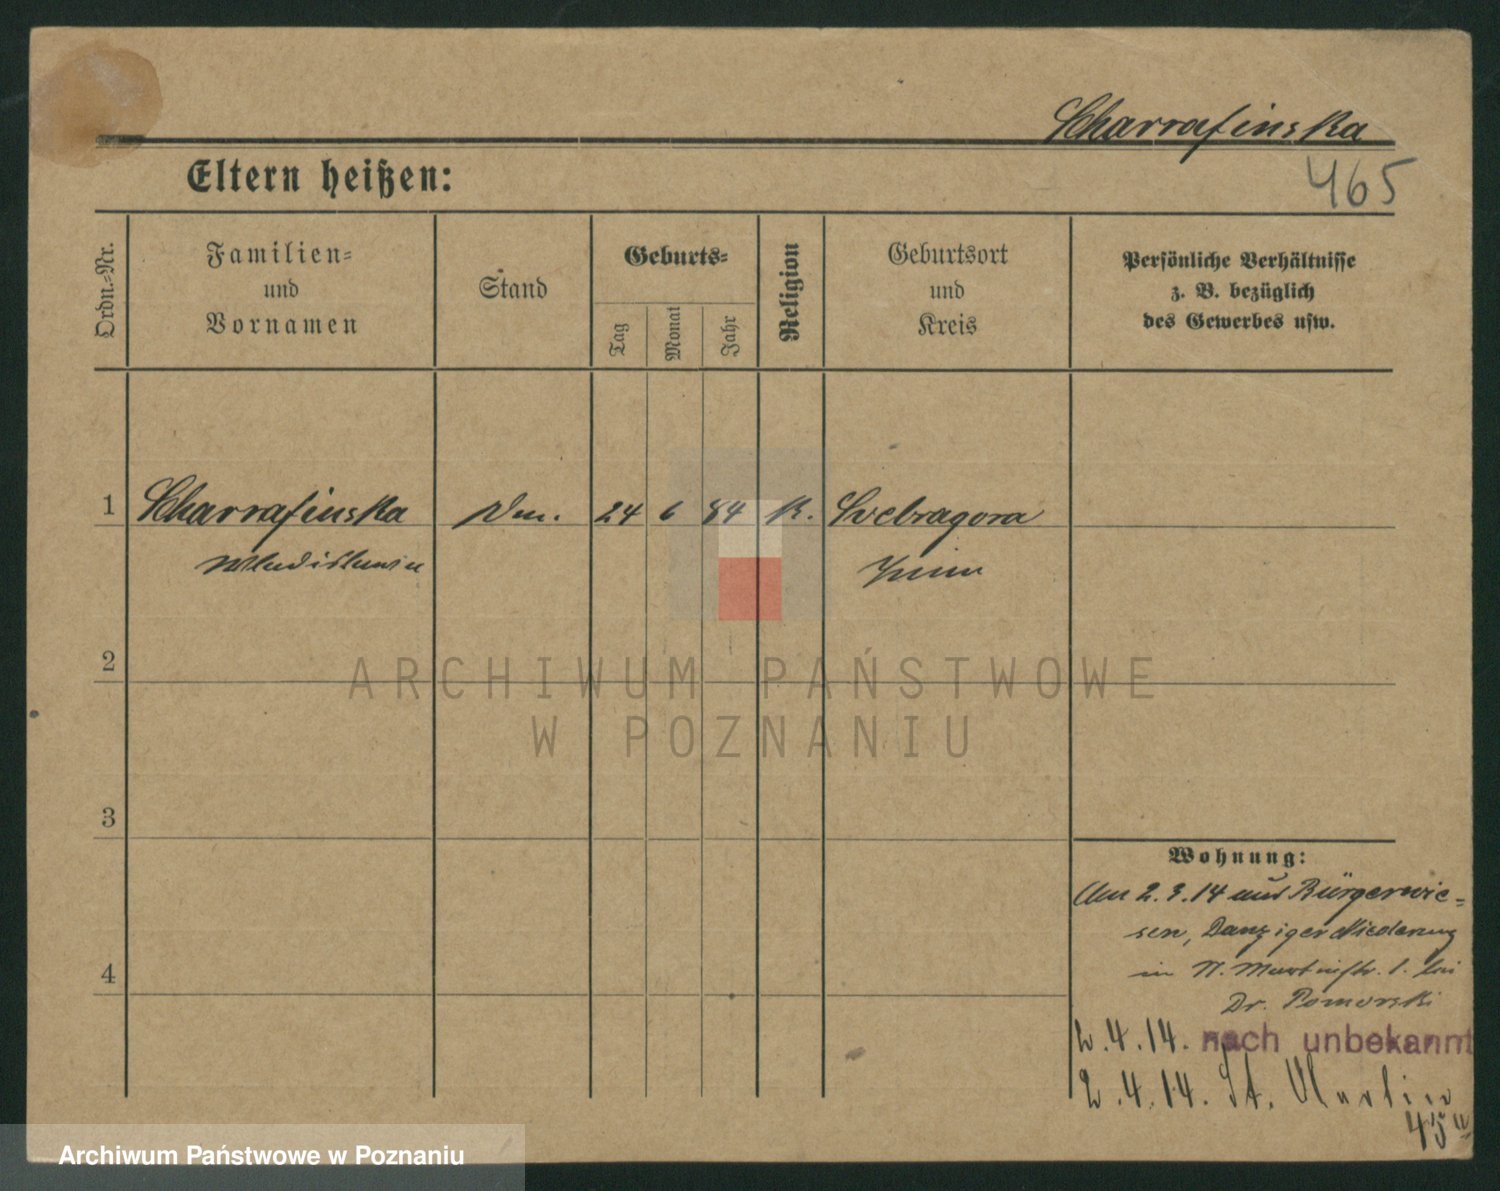 Charrafinska
465
Eltern heißen:
Ordn.-Nr.
Familien-
und
Vornamen
Stand
Geburts-
Tag
Monat
Jahr
Religion
Geburtsort
und
Kreis
Persönliche Verhältnisse
z. B. bezüglich
des Gewerbes usw.
1 Charrafinska 24 6 84 K.
2
ARCHIWUM PAŃSTWOWE
W POZNANIU
3
Wohnung:
Am 2.3.14 aus Bürgerwie-
sen, Danziger Niederung
in Martinstr. 1. bei
Dr. Pomorski
4
2.4.14. nach unbekannt
2.4.14. St. Martin
45
Archiwum Państwowe w Poznaniu